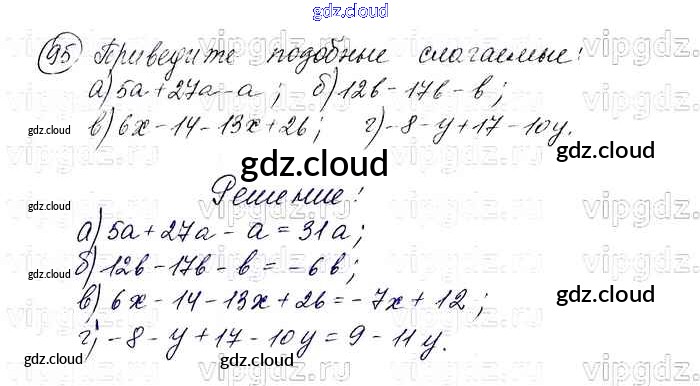 gdz.cloud
95 Приведите подобные слагаемые:
а) 5a + 27a - a; б) 12b - 17b - b;
в) 6x - 14 - 13x + 26; г) -8 - y + 17 - 10y.
gdz.cloud gdz.cloud gdz.cloud
Решение:
gdz.cloud
а) 5a + 27a - a = 31a;
б) 12b - 17b - b = -6b;
gdz.cloud
в) 6x - 14 - 13x + 26 = -7x + 12;
gdz.cloud
г) -8 - y + 17 - 10y = 9 - 11y.
gdz.cloud gdz.cloud